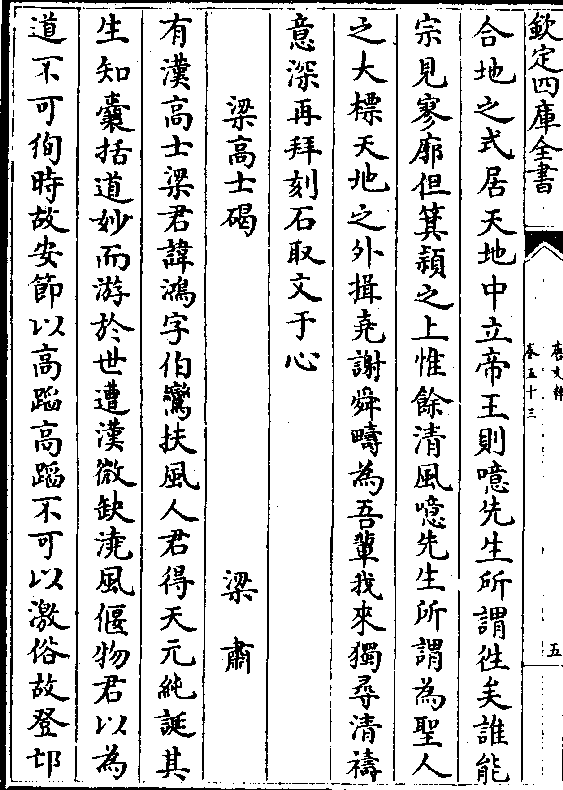 欽定四庫全書
唐文粹
卷五十三
五
合地之式居天地中立帝王則噫先生所謂徃矣誰能
宗見寥廓但箕潁之上惟餘清風噫先生所謂為聖人
之大標天地之外揖堯謝舜疇為吾輩我來獨尋清禱
意深再拜刻石取文于心
梁高士碣 梁肅
有漢高士梁君諱鴻字伯鸞扶風人君得天元純誕其
生知囊括道妙而游於世遭漢微缺澆風偃物君以為
道不可徇時故安節以高蹈高蹈不可以激俗故登邙